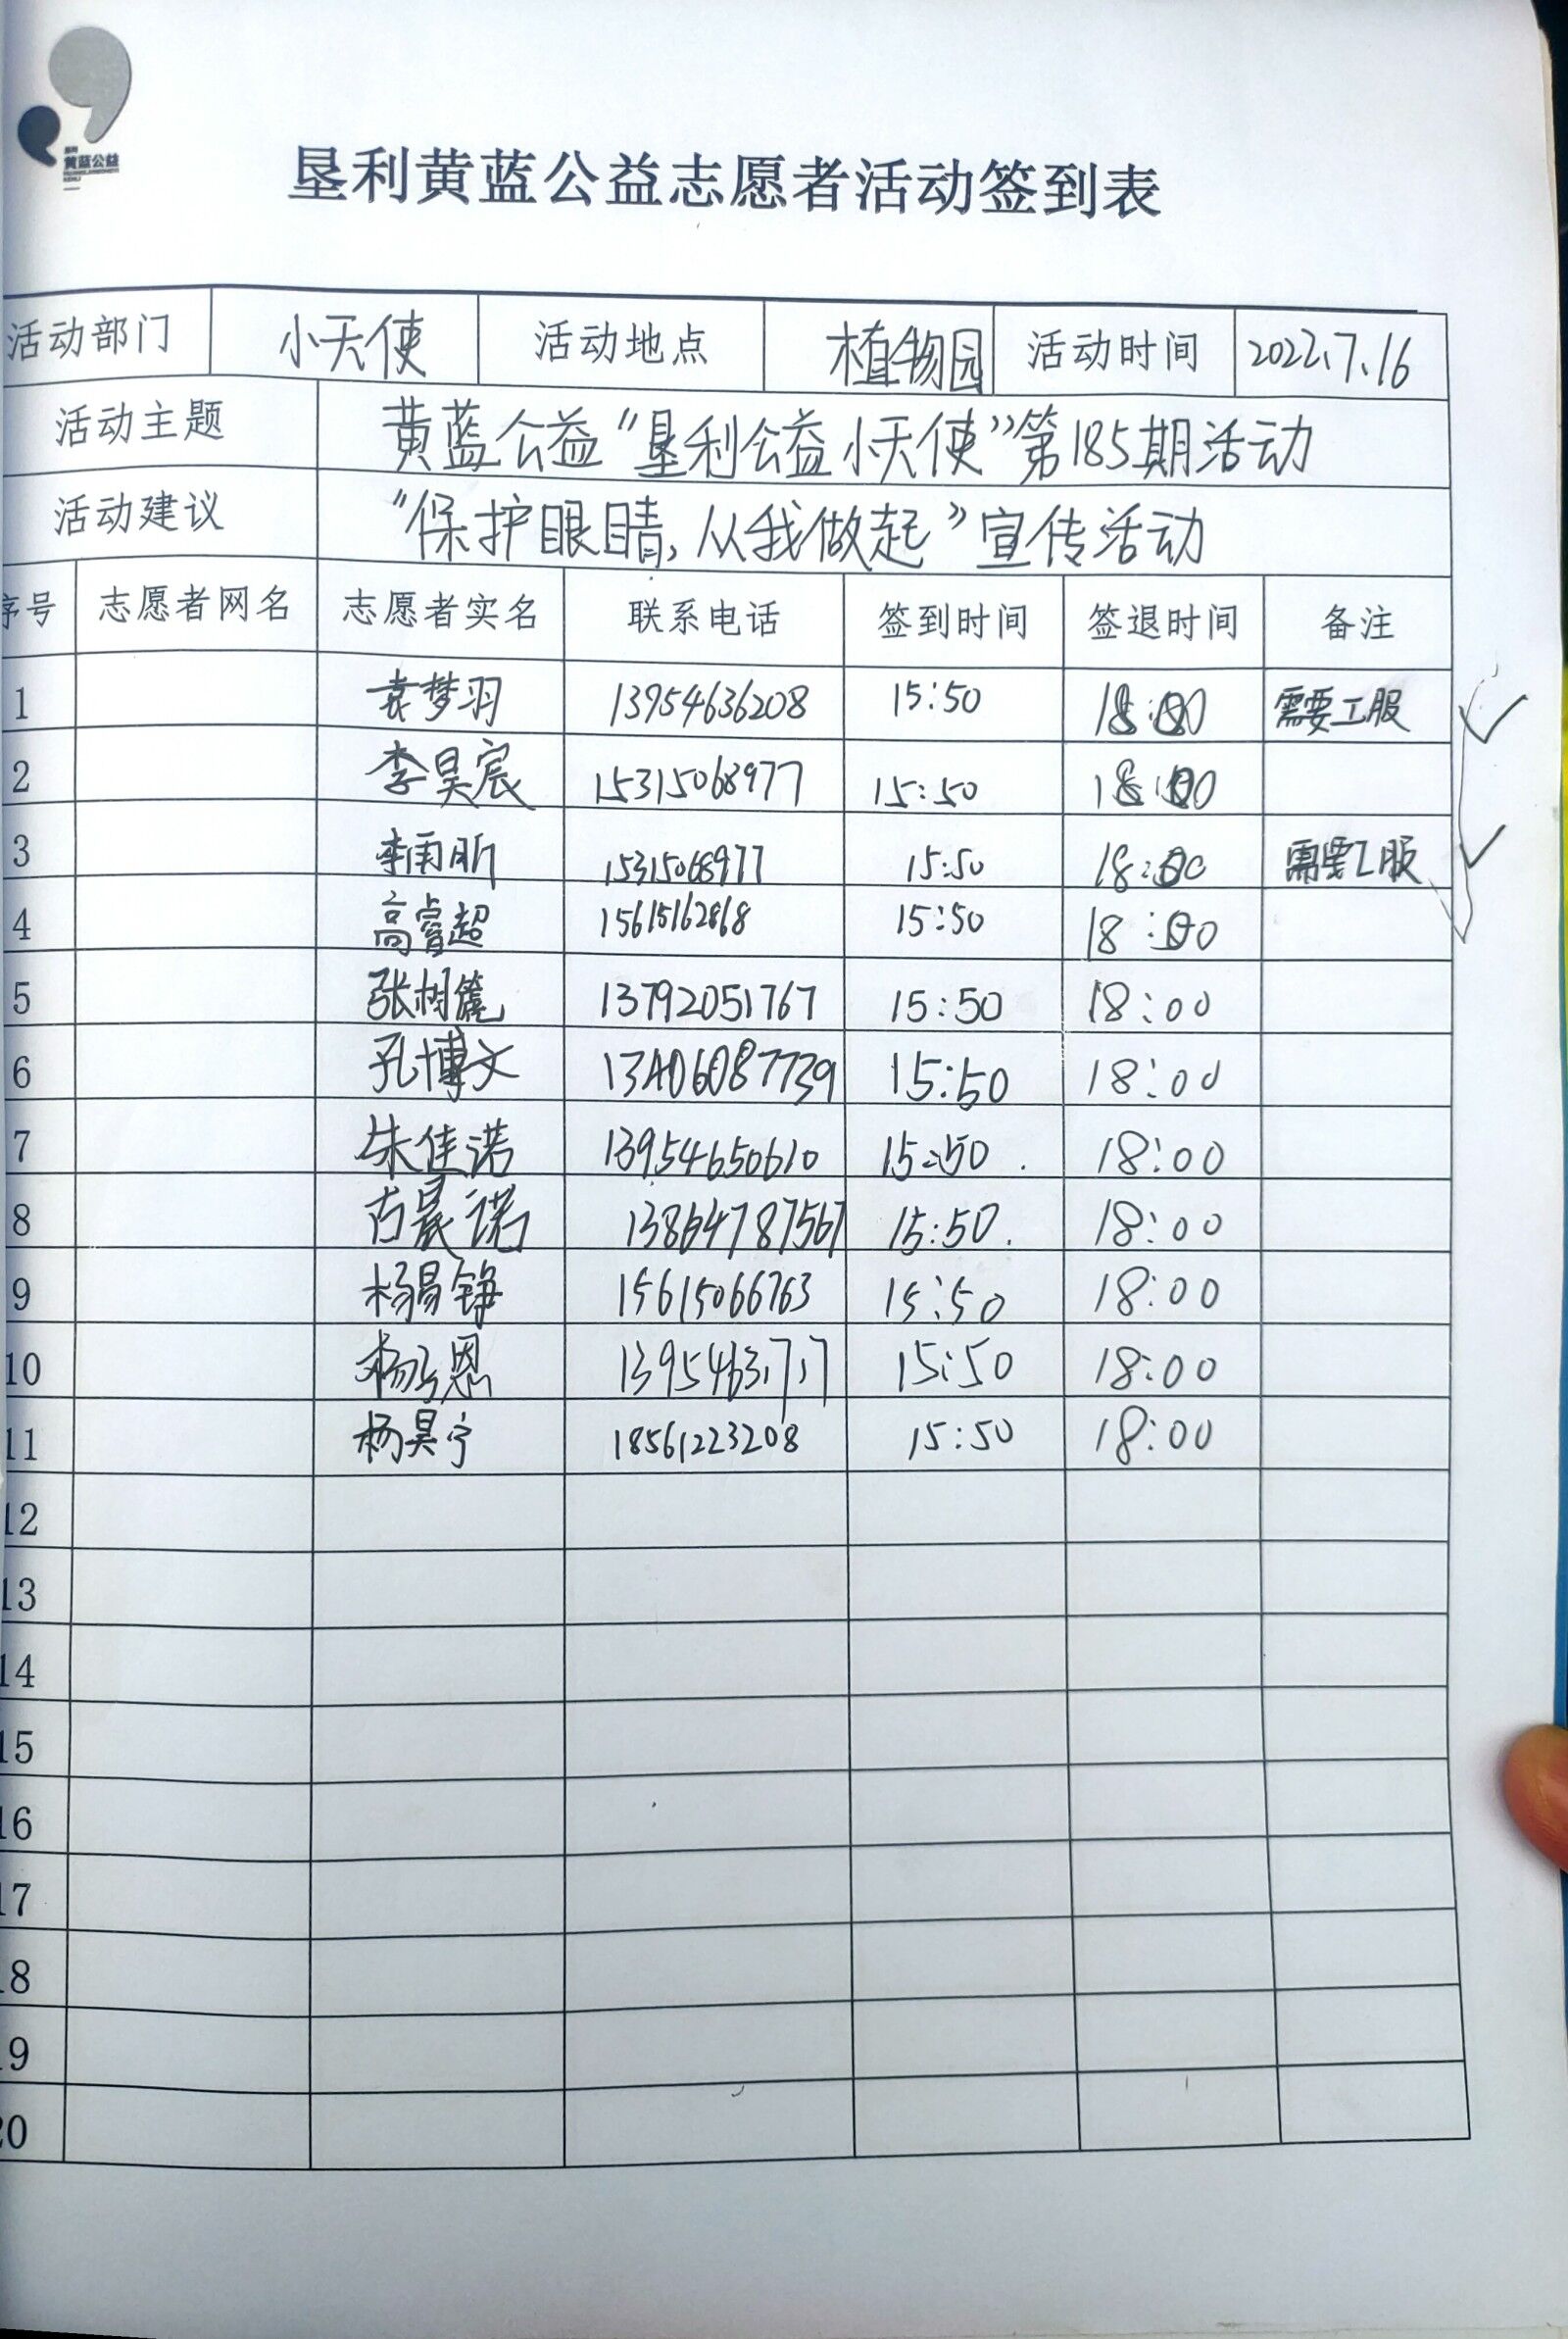 垦利
黄蓝公益
垦利黄蓝公益志愿者活动签到表
活动部门 小天使 活动地点 植物园 活动时间 2022.7.16
活动主题 黄蓝公益“垦利公益小天使”第185期活动
活动建议 “保护眼睛,从我做起”宣传活动
序号 志愿者网名 志愿者实名 联系电话 签到时间 签退时间 备注
1 袁梦羽 13954636208 15:50 18:00 需要工服
2 李昊宸 15315068977 15:50 18:00
3 李雨昕 15315068977 15:50 18:00 需要工服
4 高睿超 15615162868 15:50 18:00
5 张树篪 13792051767 15:50 18:00
6 孔博文 13406087739 15:50 18:00
7 朱佳诺 13954650610 15:50 18:00
8 古晨诺 13864787567 15:50 18:00
9 杨易铮 15615066763 15:50 18:00
10 15:50 18:00
11 杨昊宁 18561223208 15:50 18:00
12
13
14
15
16
17
18
19
20